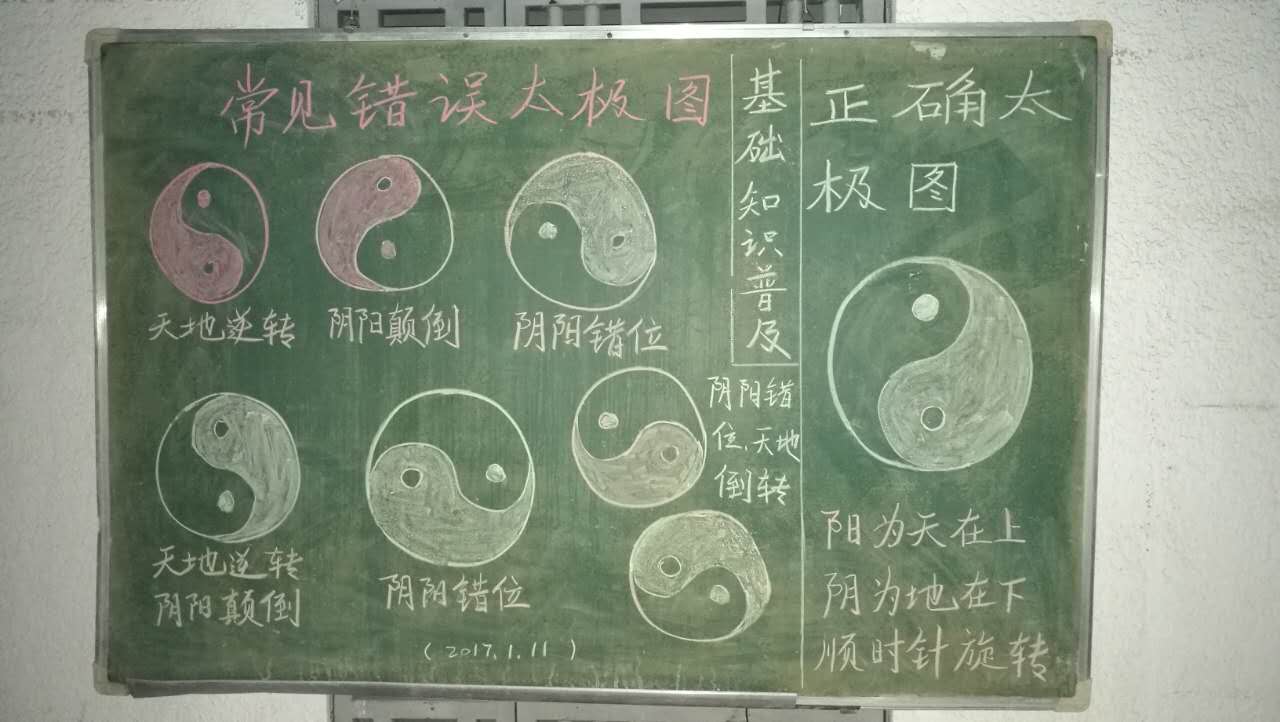 常见错误太极图
天地逆转
阴阳颠倒
阴阳错位
天地逆转
阴阳颠倒
阴阳错位
阴阳错
位、天地
倒转
(2017.1.11)
基础知识普及
正确太
极图
阳为天在上
阴为地在下
顺时针旋转